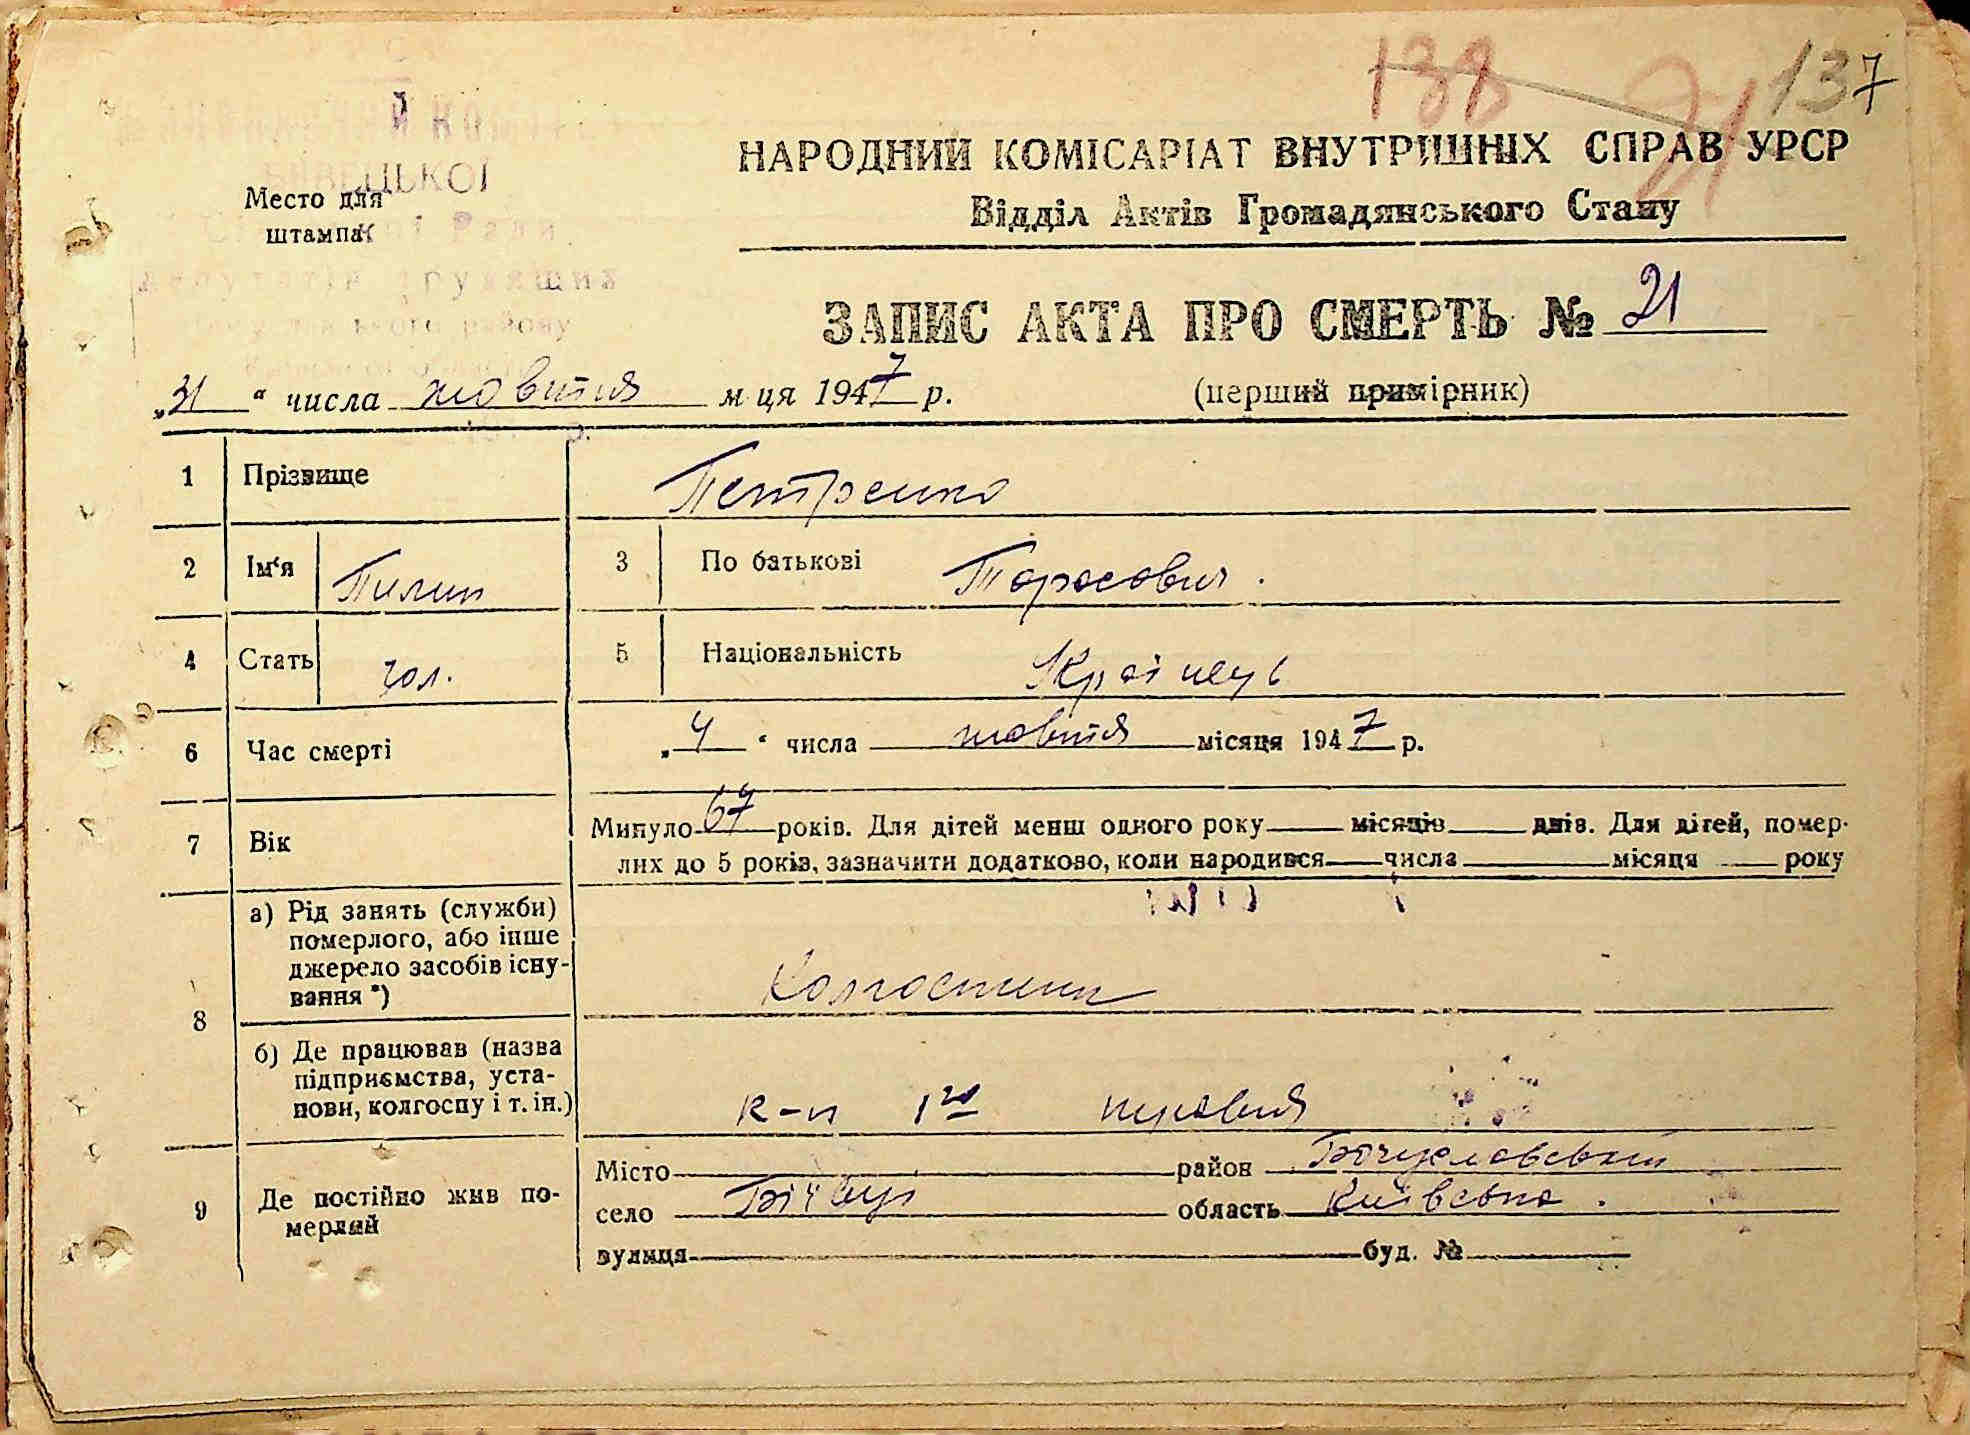 138 21 137
НАРОДНИЙ КОМІСАРІАТ ВНУТРІШНІХ СПРАВ УРСР
Відділ Актів Громадянського Стану
Место для
штампа
ЗАПИС АКТА ПРО СМЕРТЬ № 21
„31“ числа жовтня м-ця 1947 р.
(перший примірник)
1 Прізвище Петренко
2 Ім‘я Пилип 3 По батькові Тарасович.
4 Стать чол. 5 Національність Українець
6 Час смерті „4“ числа жовтня місяця 1947 р.
7 Вік Минуло 67 років. Для дітей менш одного року місяців днів. Для дітей, помер-
лих до 5 років, зазначити додатково, коли народився числа місяця року
8 а) Рід занять (служби)
померлого, або інше
джерело засобів існу-
вання *)
Колгоспник
б) Де працював (назва
підприємства, уста-
нови, колгоспу і т. ін.)
к-п 1го травня
9 Де постійно жив по-
мерлий
Місто район Богуславський
село Бієвці область Київська.
вулиця буд. №